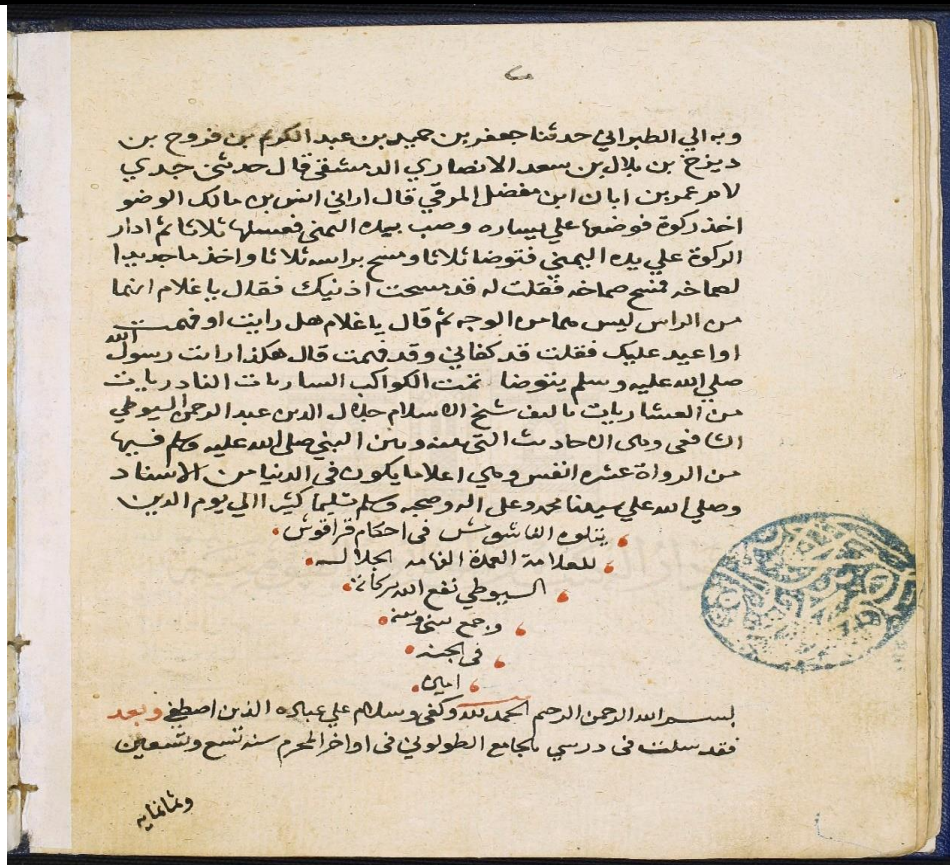 وبه الي الطبراني حدثنا جعفر بن حميد بن عبد الكريم بن فروخ بن
ديزخ بن بلال بن سعد الانصاري الدمشقي قال حدثني جدي
لامر عمر بن ابان ابن مفضل المرقي قال اراني انس بن مالك الوضو
اخذ ركوة فوضعها علي يساره وصب بيده اليمنى فغسلها ثلاثا ثم ادار
الركوة علي يده اليمني فتوضا ثلاثا ومسح براسه ثلاثا واخذ ما جديدا
لصماخه فمسح صماخه فقلت له قد مسحت اذنيك فقال يا غلام انما
من الراس ليس هما من الوجه ثم قال يا غلام هل رايت او فهمت
او اعيد عليك فقلت قد كفاني وقد فهمت قال هكذا رايت رسول الله
صلي الله عليه وسلم يتوضا تمت الكواكب الساريات النادريات
من العشاريات تاليف شيخ الاسلام جلال الدين عبد الرحمن السيوطي
الشافعى وهى الاحاديث التى بينه وبين النبي صلى الله عليه وسلم فيها
من الرواة عشره انفس وهي اعلا ما يكون فى الدنيا من الاسناد
وصلي الله علي سيدنا محمد وعلى اله وصحبه وسلم تسليما كثيرا الي يوم الدين
يتلوه الفاشوش فى احكام قراقوش
للعلامة العمدة الفهامه الجلال
السيوطي نفع الله ببركاته
وجمع بينى وبينه
فى الجنه
امين
بسم الله الرحمن الرحيم الحمد لله وكفى وسلام علي عباده الذين اصطفى وبعد
فقد سئلت فى درسي بالجامع الطولوني فى اواخر المحرم سنه تسع وتسعين
وثمانمايه